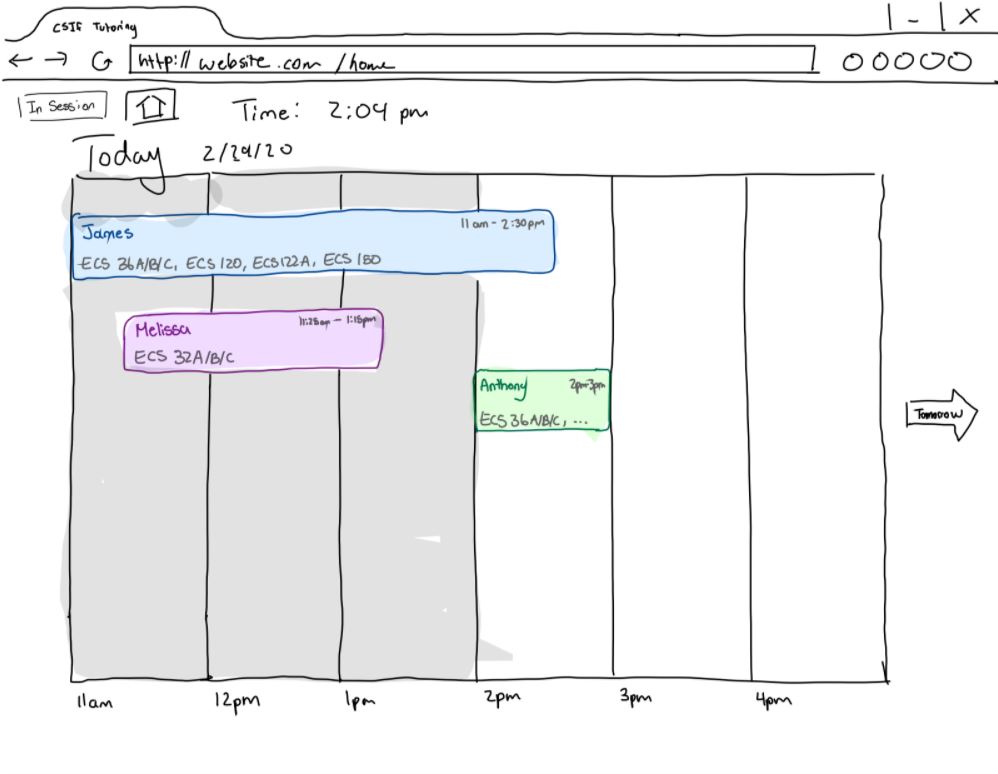 CSIF Tutoring
http:// website.com /home
In Session
Time: 2:04 pm
Today 2/29/20
James 11am - 2:30pm
ECS 36A/B/C, ECS 120, ECS122A, ECS 150
Melissa 11:25am - 1:15pm
ECS 32A/B/C
Anthony 2pm-3pm
ECS 36A/B/C, ...
Tomorrow
11am 12pm 1pm 2pm 3pm 4pm